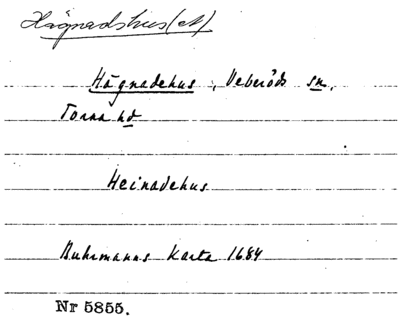 Hägnadshus (et)
Hägnadehus, Veberöds sn,
Torna hd
Heinadehus
Buhrmanns Karta 1684
Nr 5855.